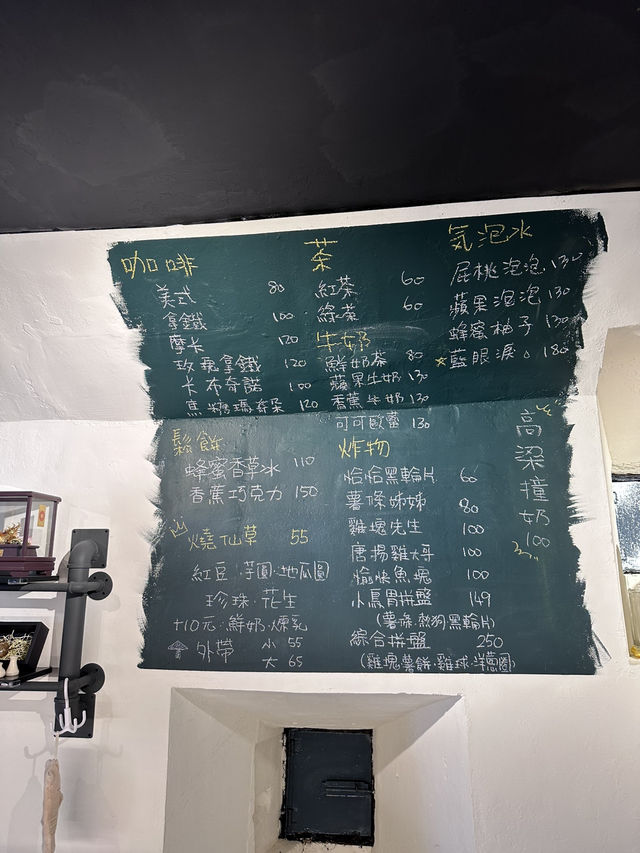 咖啡
美式 80
拿鐵 100
摩卡 120
玫瑰拿鐵 120
卡布奇諾 100
焦糖瑪奇朵 120
茶
紅茶 60
綠茶 60
牛奶
鮮奶茶 80
蘋果牛奶 130
香蕉牛奶 130
可可歐蕾 130
気泡水
屁桃泡泡 130
蘋果泡泡 130
蜂蜜柚子 130
☆藍眼淚 180
鬆餅
蜂蜜香草冰 110
香蕉巧克力 150
燒仙草 55
紅豆·芋圓·地瓜圓
珍珠·花生
+10元:鮮奶·煉乳
外帶 小 55
大 65
炸物
恰恰黑輪片 60
薯條姊姊 80
雞塊先生 100
唐揚雞大哥 100
愉快魚塊 100
小鳥胃拼盤 149
(薯條·熱狗·黑輪片)
綜合拼盤 250
(雞塊·薯餅·雞球·洋蔥圈)
高粱撞奶
100